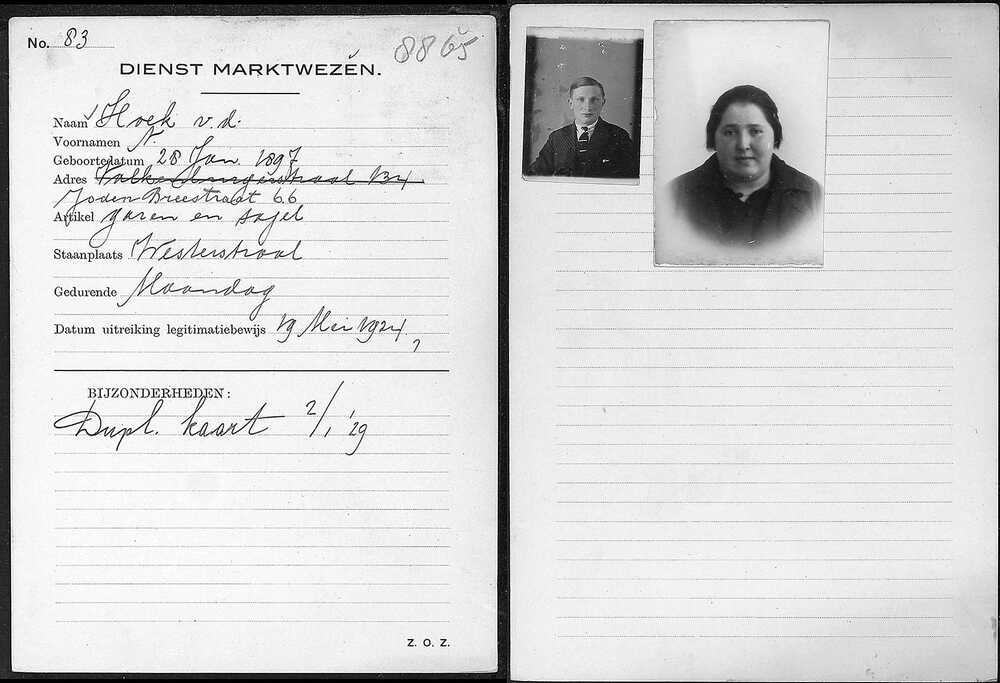 No. 83
8865
DIENST MARKTWEZEN.
Naam Hoek v.d.
Voornamen N.
Geboortedatum 28 Jan. 1897
Adres Valkenburgerstraat 134
Joden Breestraat 66
Artikel garen en sajet
Staanplaats Westerstraat
Gedurende Maandag
Datum uitreiking legitimatiebewijs 19 Mei 1924,
BIJZONDERHEDEN:
Dupl. kaart 2/1 '29
Z. O. Z.